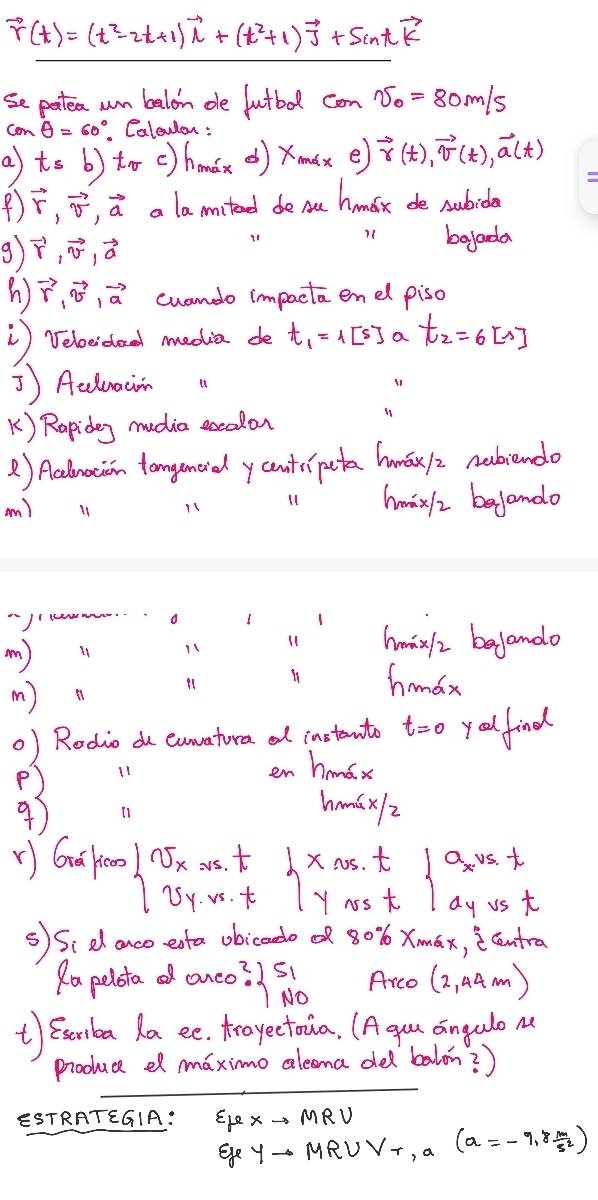 r⃗(t) = (t²-2t+1) i⃗ + (t²+1) j⃗ + Sint k⃗
Se patea un balón de futbol con v₀ = 80 m/s
con θ = 60°. Calcular:
a) ts b) tv c) hmáx d) Xmáx e) r⃗(t), v⃗(t), a⃗(t)
f) r⃗, v⃗, a⃗ a la mitad de su hmáx de subida
g) r⃗, v⃗, a⃗ " " bajada
h) r⃗, v⃗, a⃗ cuando impacta en el piso
i) Velocidad media de t₁ = 1[s] a t₂ = 6[s]
J) Aceleración " "
K) Rapidez media escalar "
l) Aceleración tangencial y centrípeta hmáx/2 subiendo
m) " " " hmáx/2 bajando
m) " " " hmáx/2 bajando
n) " " " hmáx
o) Radio de curvatura al instante t=0 y al final
p) " en hmáx
q) " hmáx/2
r) Gráficos { Vx vs. t { x vs. t { ax vs. t
Vy. vs. t y vs t ay vs t
s) Si el arco esta ubicado al 80% Xmáx, ¿entra
la pelota al arco? } SI Arco (2,44 m)
NO
t) Escriba la ec. trayectoria. (A que ángulo se
produce el máximo alcance del balón?)
ESTRATEGIA: Eje x → MRU
Eje Y → MRUV r, a (a = -9,8 m/s²)